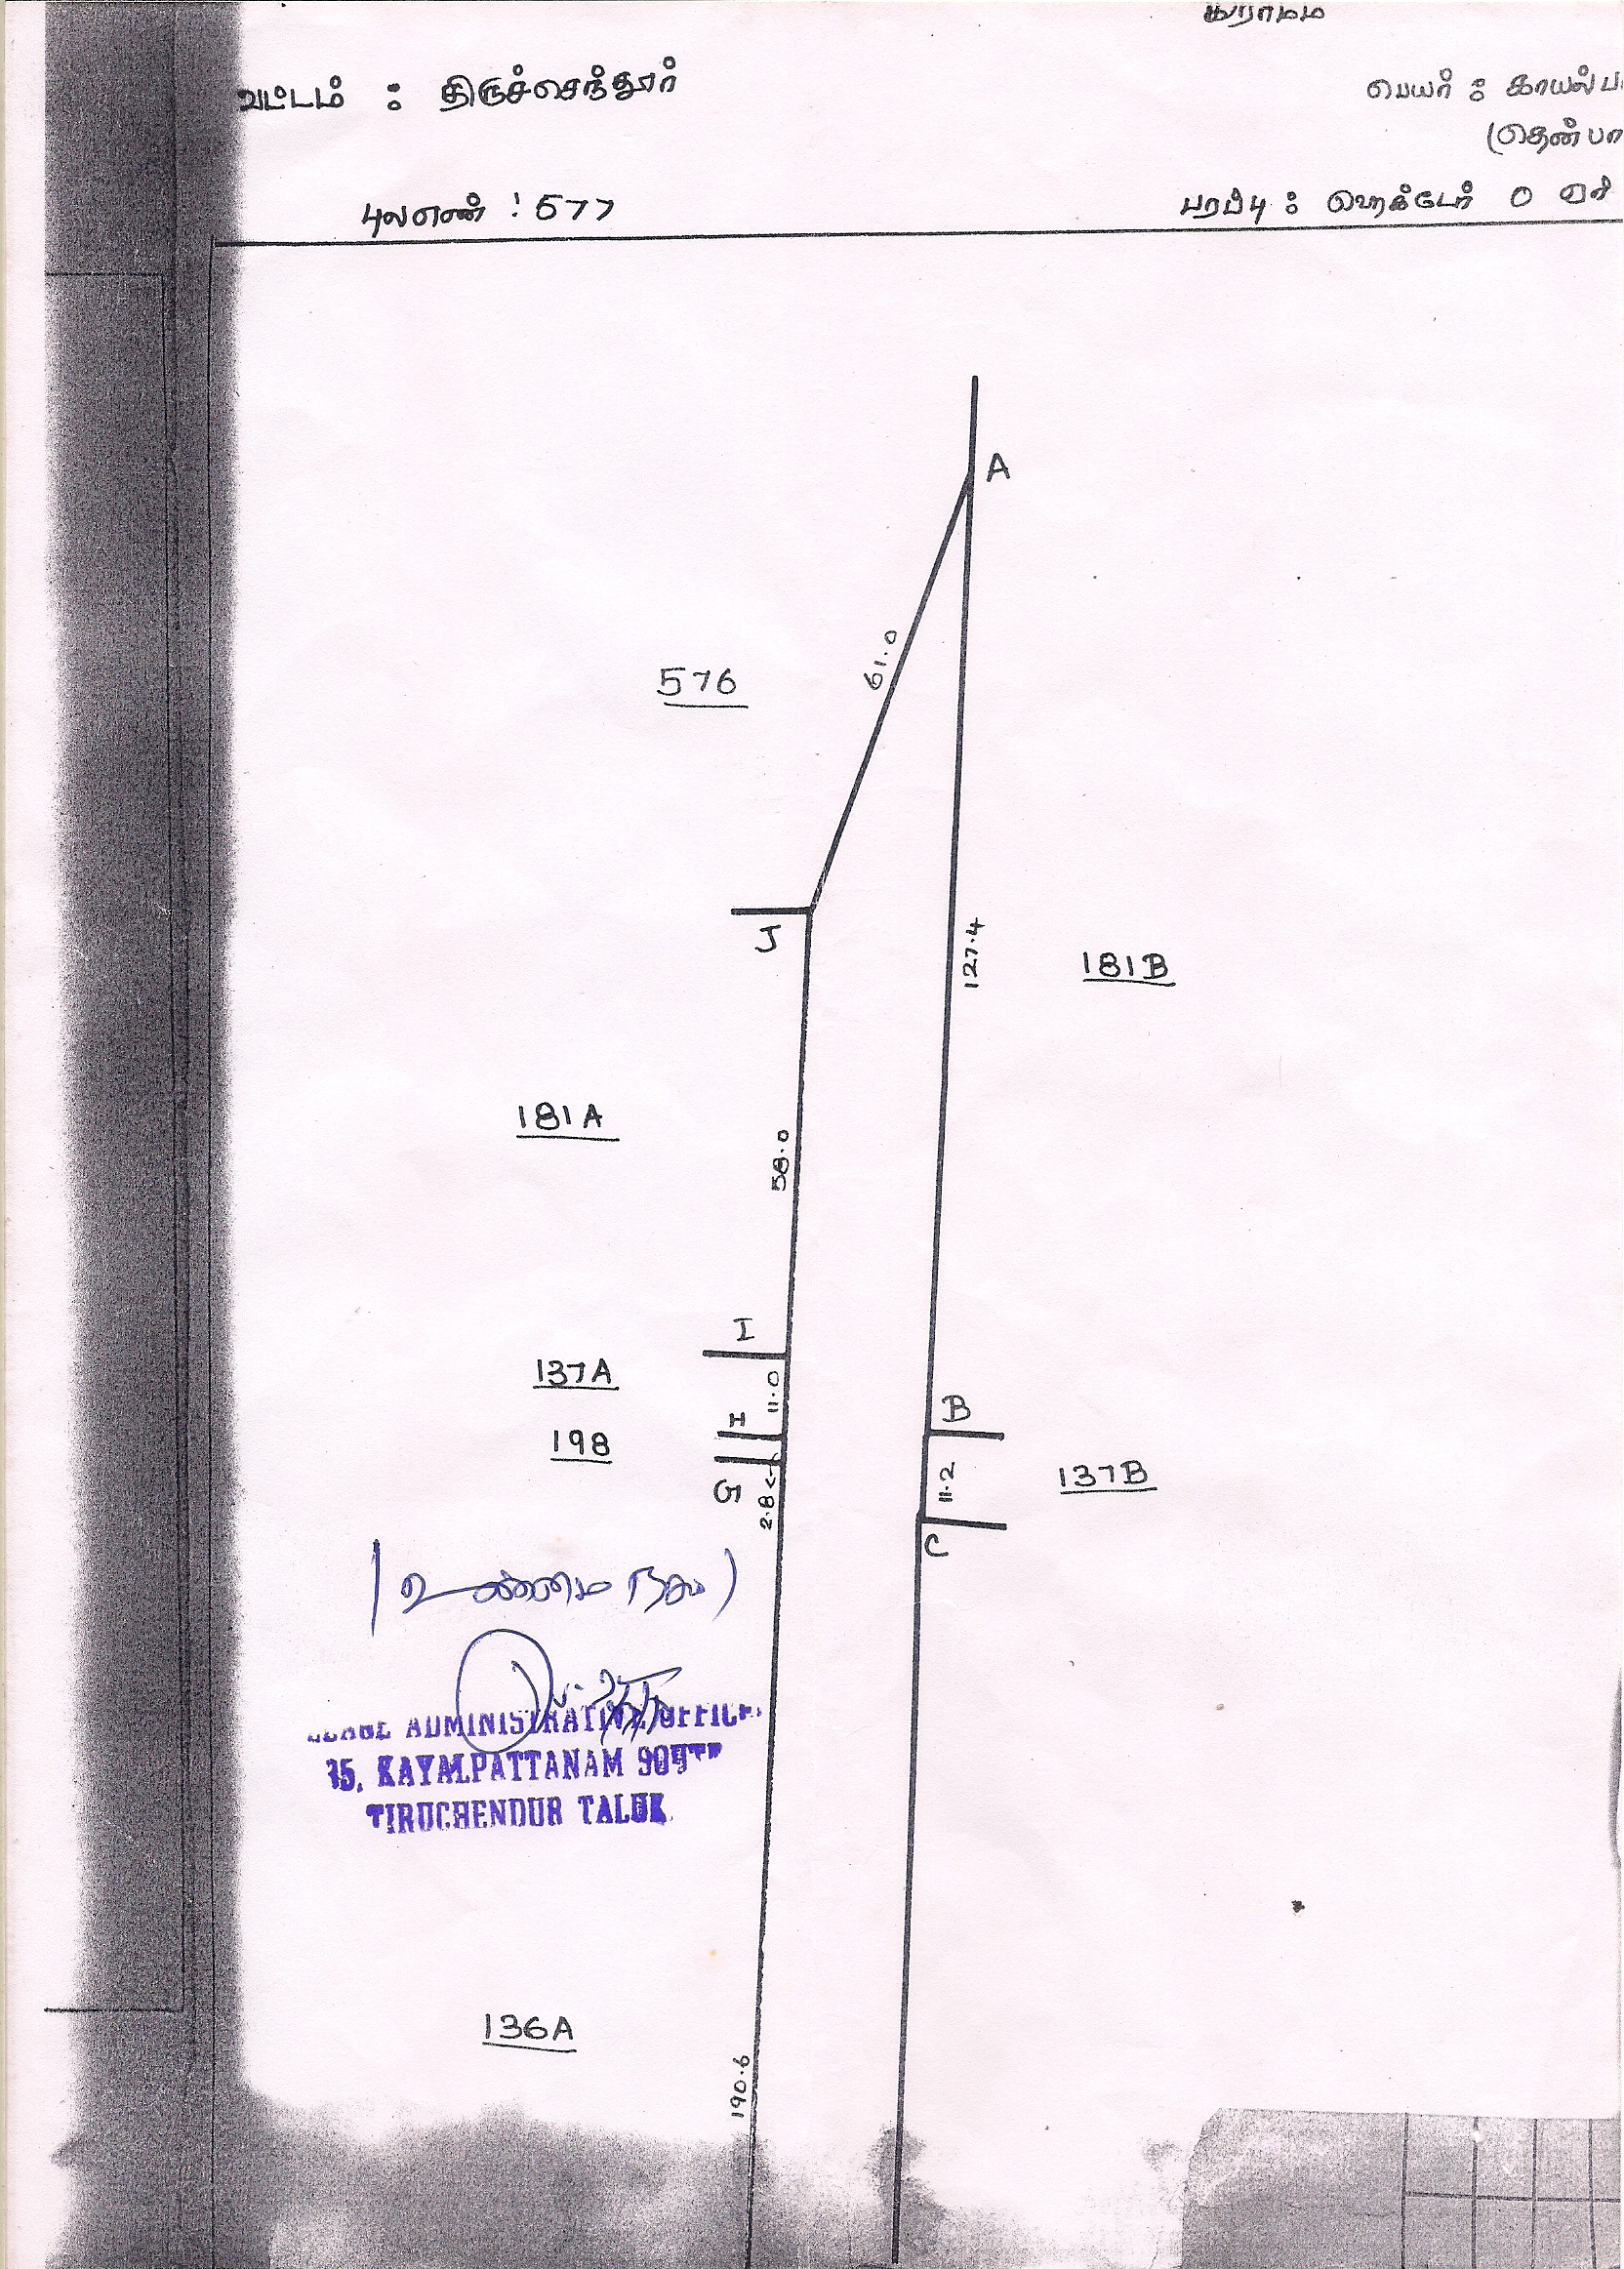 வட்டம் : திருச்செந்தூர்
பெயர் : காயல்ப
(தென்பா
புலஎண் : 577
பரப்பு : ஹெக்டேர் 0 ஏர்
A
61.0
576
J
127.4
181B
181A
58.0
I
137A
11.0
H
B
198
G
2.8
11.2
137B
C
(உண்மை நகல்)
ADMINISTRATIVE OFFICE
35, KAYALPATTANAM SOUTH
TIRUCHENDUR TALUK
136A
190.6